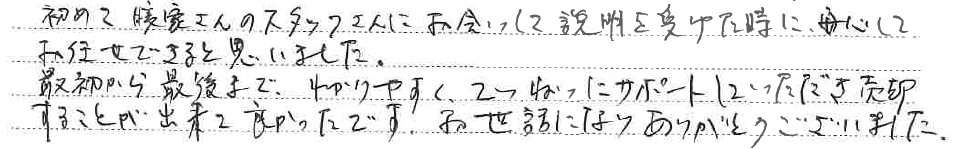 初めて 家さんのスタッフさんにお会いして説明を受けた時に、安心して
お任せできると思いました。
最初から最後まで、わかりやすく、ていねいにサポートしていただき売却
することが出来て良かったです。お世話になりありがとうございました。